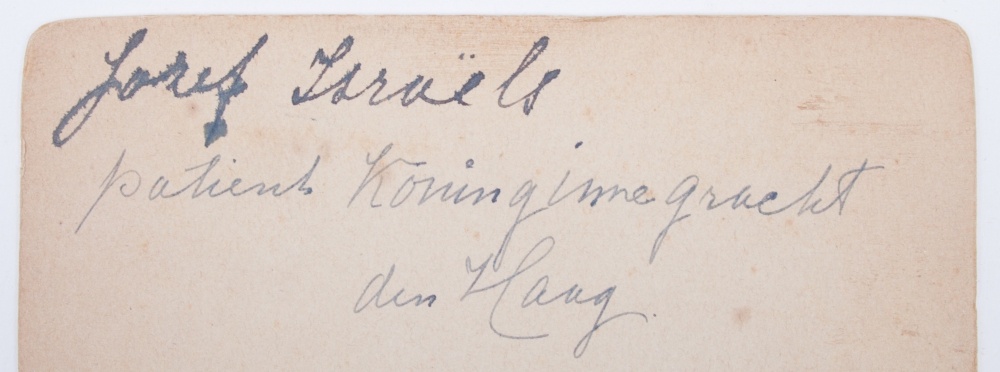 Jozef Israëls
patient Koninginnegracht
den Haag.